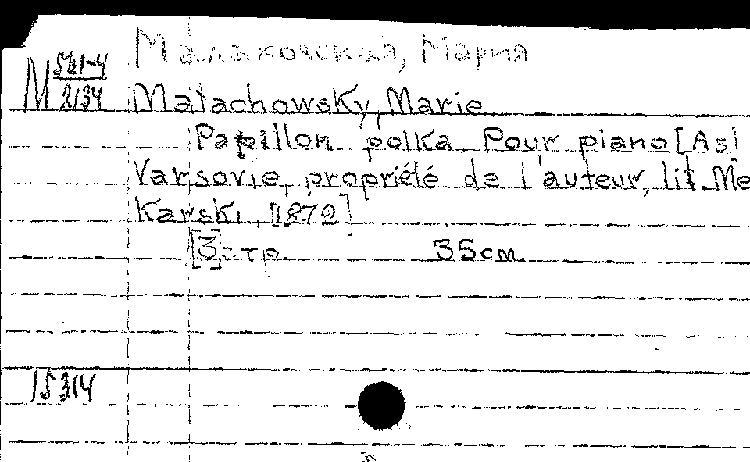 Малаховская, Мария
М 521-4
2134
Malachowsky, Marie
Papillon polka Pour piano [As]
Varsovie, propriété de l'auteur, lit. Me
Karski, [1872]
[3] стр. 35 см.
15314